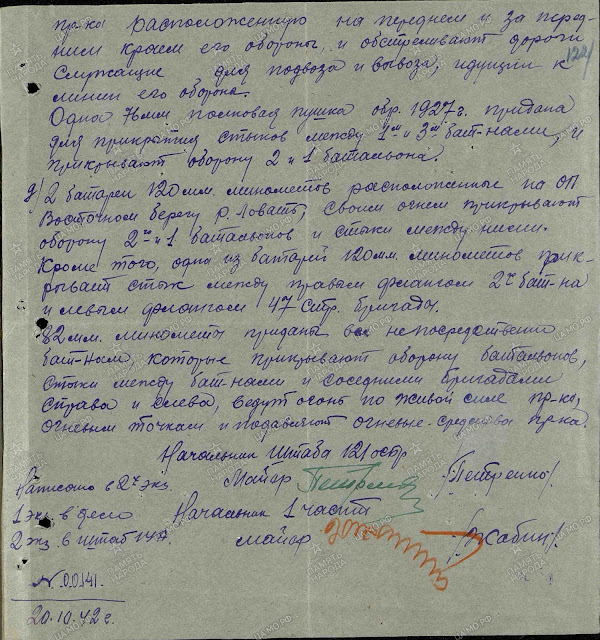 пр-ка расположенную на переднем и за перед-
ним краем его обороны, и обстреливают дороги
служащие для подвоза и вывоза, идущих к
линии его обороны.
Одна 76мм полковая пушка обр. 1927г. придана
для прикрытия стыков между 1м и 3м бат-нами, и
прикрывают оборону 2 и 1 батальона.
д/ 2 батареи 120мм. минометов расположенные на ОП
Восточном берегу р. Ловать, своим огнем прикрывают
оборону 2го и 1 батальонов и стыки между ними.
Кроме того, одна из батарей 120мм. минометов прик-
рывает стык между правым флангом 2го бат-на
и левым флангом 47 Стр. бригады.
82мм. минометы приданы непосредственно
бат-нам, которые прикрывают оборону батальонов,
стыки между бат-нами и соседними бригадами
справа и слева, ведут огонь по живой силе пр-ка,
огневым точкам и подавляют огневые средства пр-ка.
Начальник Штаба 121 остр
Написано в 2х экз. Майор /Петренко/.
1 экз. в дело Начальник 1 части
2 экз. в штаб майор /Жабин/.
№ 00141.
20.10.42г.